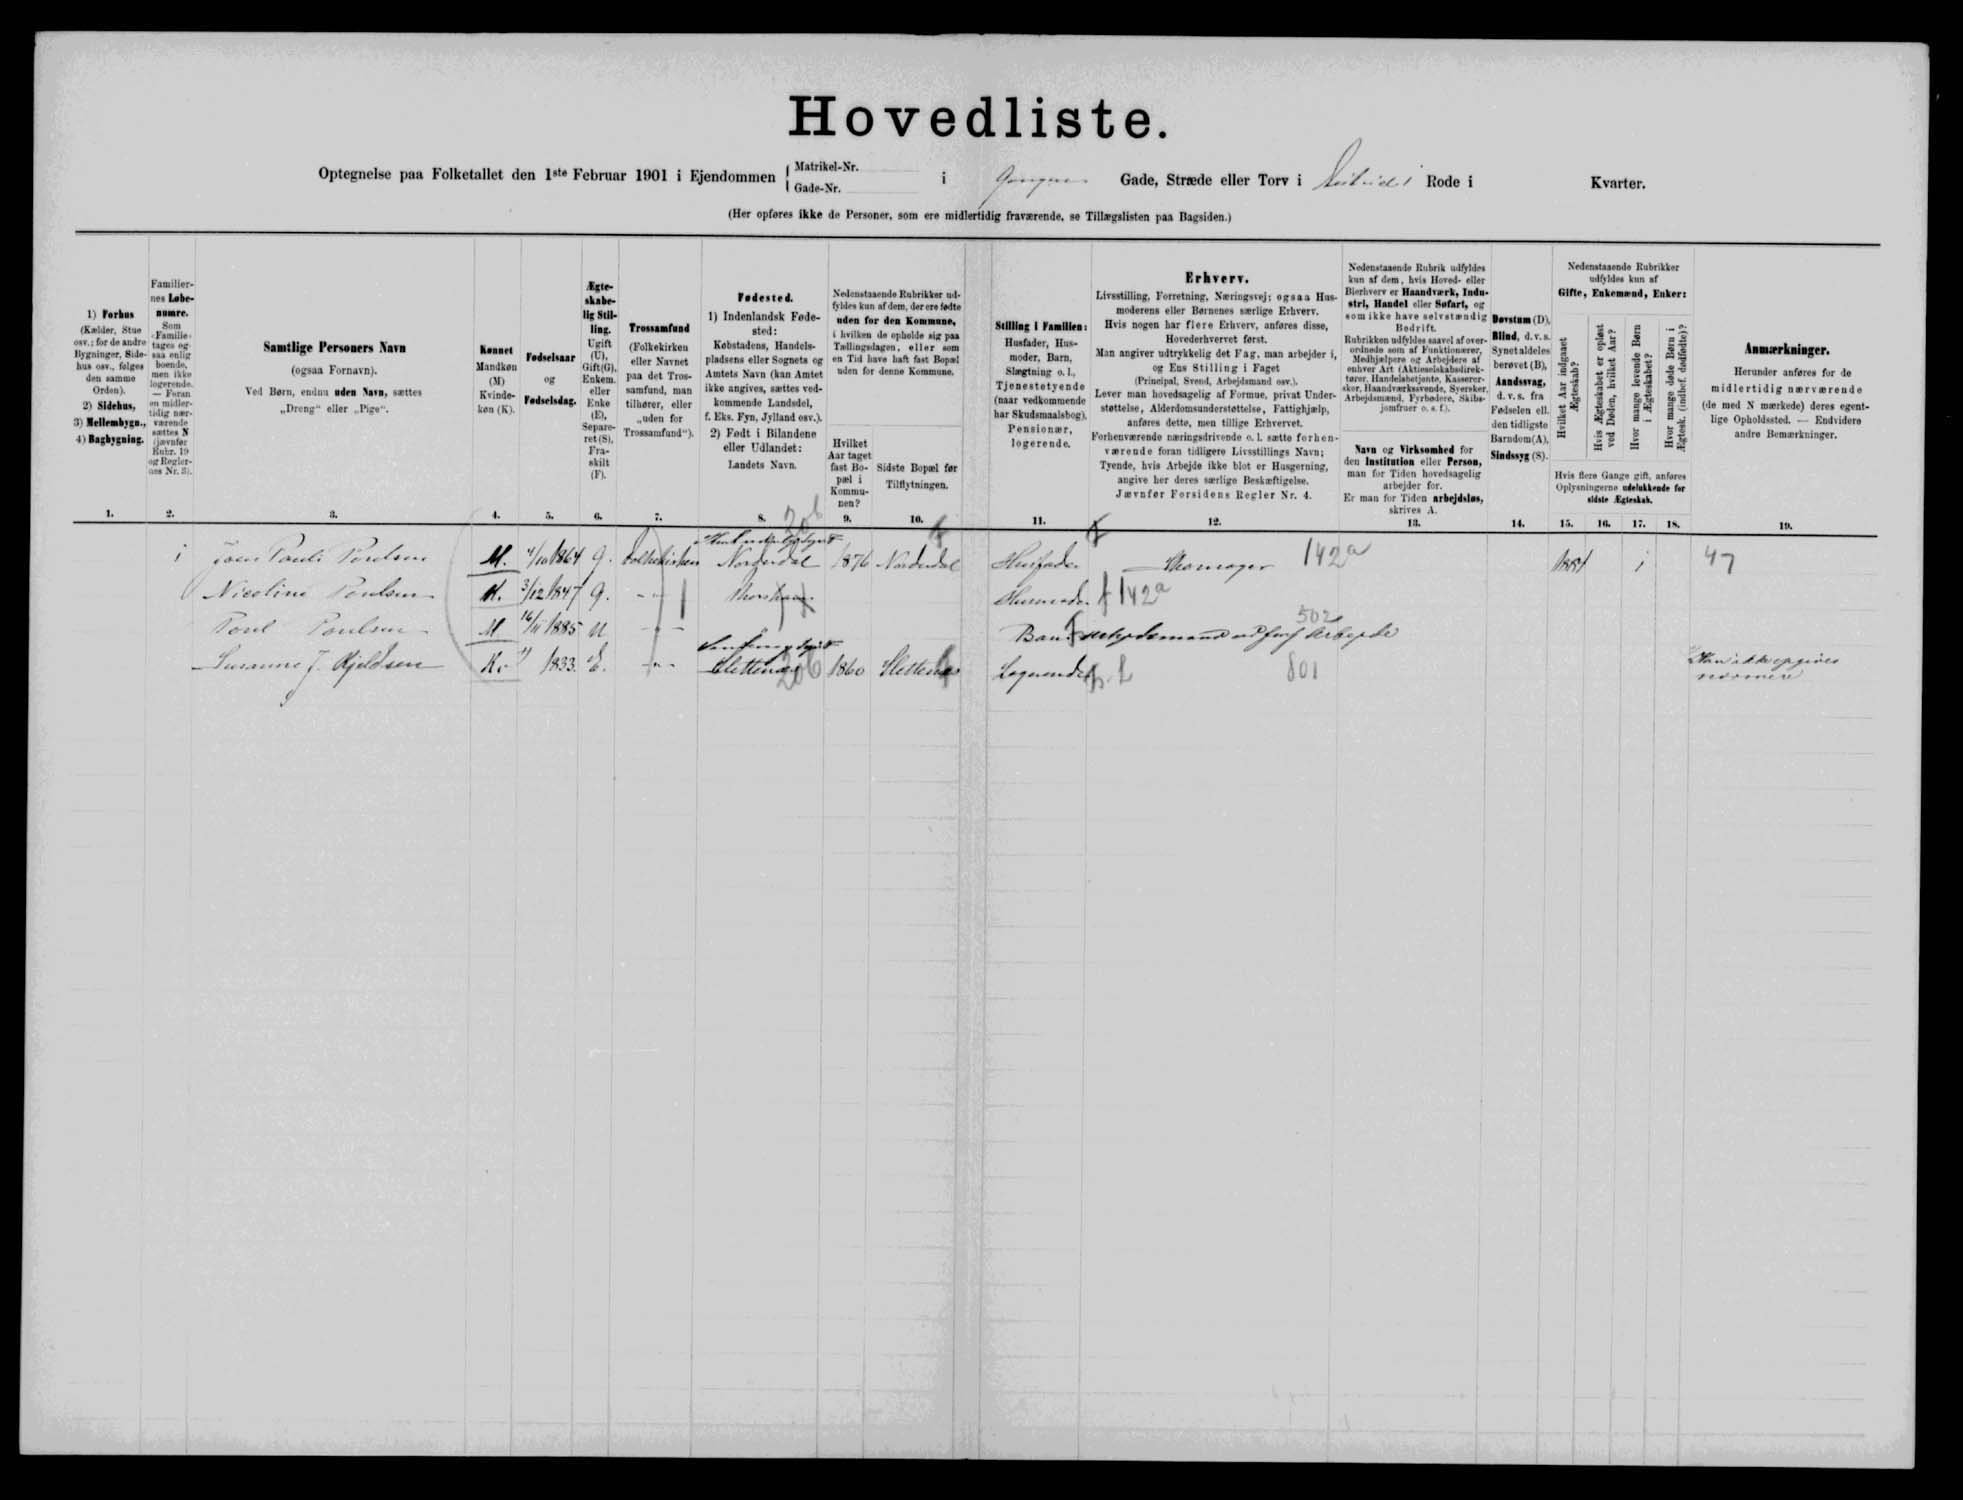 Hovedliste.
Optegnelse paa Folketallet den 1ste Februar 1901 i Ejendommen { Matrikel-Nr. i Gade, Stræde eller Torv i Rode i Kvarter.
Gade-Nr.
(Her opføres ikke de Personer, som ere midlertidig fraværende, se Tillægslisten paa Bagsiden.)
1) Forhus
(Kælder, Stue
osv.; for de andre
Bygninger, Side-
hus osv., følges
den samme
Orden).
2) Sidehus,
3) Mellembygn.,
4) Bagbygning.
Familier-
nes Løbe-
numre.
Som
»Familie«
tages og-
saa enlig
boende,
men ikke
logerende.
— Foran
en midler-
tidig nær-
værende
sættes N
(jævnfør
Rubr. 19
og Regler-
nes Nr. 3).
Samtlige Personers Navn
(ogsaa Fornavn).
Ved Børn, endnu uden Navn, sættes
„Dreng“ eller „Pige“.
Kønnet
Mandkøn
(M)
Kvinde-
køn (K).
Fødselsaar
og
Fødselsdag.
Ægte-
skabe-
lig Stil-
ling.
Ugift
(U),
Gift(G),
Enkem.
eller
Enke
(E),
Separe-
ret (S),
Fra-
skilt
(F).
Trossamfund
(Folkekirken
eller Navnet
paa det Tros-
samfund, man
tilhører, eller
„uden for
Trossamfund“).
Fødested.
1) Indenlandsk Føde-
sted:
Købstadens, Handels-
pladsens eller Sognets og
Amtets Navn (kan Amtet
ikke angives, sættes ved-
kommende Landsdel,
f. Eks. Fyn, Jylland osv.).
2) Født i Bilandene
eller Udlandet:
Landets Navn.
Nedenstaaende Rubrikker ud-
fyldes kun af dem, der ere fødte
uden for den Kommune,
i hvilken de opholde sig paa
Tællingsdagen, eller som
en Tid have haft fast Bopæl
uden for denne Kommune.
Hvilket
Aar taget
fast Bo-
pæl i
Kommu-
nen?
Sidste Bopæl før
Tilflytningen.
Stilling i Familien:
Husfader, Hus-
moder, Barn,
Slægtning o. l.,
Tjenestetyende
(naar vedkommende
har Skudsmaalsbog),
Pensionær,
logerende.
Erhverv.
Livsstilling, Forretning, Næringsvej; ogsaa Hus-
moderens eller Børnenes særlige Erhverv.
Hvis nogen har flere Erhverv, anføres disse,
Hovederhvervet først.
Man angiver udtrykkelig det Fag, man arbejder i,
og Ens Stilling i Faget
(Principal, Svend, Arbejdsmand osv.).
Lever man hovedsagelig af Formue, privat Under-
støttelse, Alderdomsunderstøttelse, Fattighjælp,
anføres dette, men tillige Erhvervet.
Forhenværende næringsdrivende o. l. sætte forhen-
værende foran tidligere Livsstillings Navn;
Tyende, hvis Arbejde ikke blot er Husgerning,
angive her deres særlige Beskæftigelse.
Jævnfør Forsidens Regler Nr. 4.
Nedenstaaende Rubrik udfyldes
kun af dem, hvis Hoved- eller
Bierhverv er Haandværk, Indu-
stri, Handel eller Søfart, og
som ikke have selvstændig
Bedrift.
Rubrikken udfyldes saavel af over-
ordnede som af Funktionærer,
Medhjælpere og Arbejdere af
enhver Art (Aktieselskabsdirek-
tører, Handelsbetjente, Kasserer-
sker, Haandværkssvende, Syersker,
Arbejdsmænd, Fyrbødere, Skibs-
jomfruer o. s. f.).
Navn og Virksomhed for
den Institution eller Person,
man for Tiden hovedsagelig
arbejder for.
Er man for Tiden arbejdsløs,
skrives A.
Døvstum (D),
Blind, d. v. s.
Synet aldeles
berøvet (B),
Aandssvag,
d. v. s. fra
Fødselen ell.
den tidligste
Barndom(A),
Sindssyg (S).
Nedenstaaende Rubrikker
udfyldes kun af
Gifte, Enkemænd, Enker:
Hvilket Aar indgaaet
Ægteskab?
Hvis Ægteskabet er opløst
ved Døden, hvilket Aar?
Hvor mange levende Børn
i Ægteskabet?
Hvor mange døde Børn i
Ægtesk. (indbef. dødfødte)?
Hvis flere Gange gift, anføres
Oplysningerne udelukkende for
sidste Ægteskab.
Anmærkninger.
Herunder anføres for de
midlertidig nærværende
(de med N mærkede) deres egent-
lige Opholdssted. — Endvidere
andre Bemærkninger.
1. 2. 3. 4. 5. 6. 7. 8. 9. 10. 11. 12. 13. 14. 15. 16. 17. 18. 19.
206
1 Joen Pauli Poulsen M. 4/10 1864 G. Folkekirken Norderdal 1876 Norderdal Husfader Skomager 142a 1 47
Nicoline Poulsen K. 3/12 1847 G. -"- Thorshavn Husmoder 142a
Poul Poulsen M 16/11 1885 U -"- Barn 502
Susanne J. Kjeldsen K. 1833. E. -"- Slettenæs 206 1860 Slettenæs Logerende 801 Kan ikke opgives
nærmere